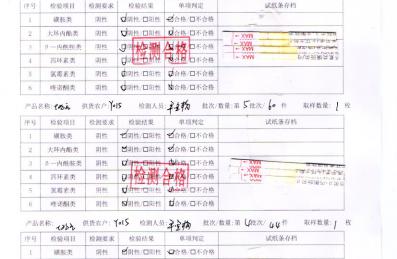 序号 检验项目 检测要求 检验结果 单项判定 试纸条存档
1 磺胺类 阴性 ☑阴性 □阳性 ☑合格 □不合格
2 大环内酯类 阴性 ☑阴性 □阳性 ☑合格 □不合格
3 β-内酰胺类 阴性 ☑阴性 □阳性 ☑合格 □不合格
4 四环素类 阴性 ☑阴性 □阳性 ☑合格 □不合格
5 氯霉素类 阴性 ☑阴性 □阳性 ☑合格 □不合格
6 喹诺酮类 阴性 ☑阴性 □阳性 ☑合格 □不合格
检测合格
MAX
MAX
MAX
产品名称: 供货农户: Y015 检测人员: 批次/数量: 第5批次/60件 取样数量: 1枚
序号 检验项目 检测要求 检验结果 单项判定 试纸条存档
1 磺胺类 阴性 ☑阴性 □阳性 ☑合格 □不合格
2 大环内酯类 阴性 ☑阴性 □阳性 ☑合格 □不合格
3 β-内酰胺类 阴性 ☑阴性 □阳性 ☑合格 □不合格
4 四环素类 阴性 ☑阴性 □阳性 ☑合格 □不合格
5 氯霉素类 阴性 ☑阴性 □阳性 ☑合格 □不合格
6 喹诺酮类 阴性 ☑阴性 □阳性 ☑合格 □不合格
检测合格
MAX
MAX
MAX
产品名称: 供货农户: Y015 检测人员: 批次/数量: 第6批次/44件 取样数量: 1枚
序号 检验项目 检测要求 检验结果 单项判定 试纸条存档
1 磺胺类 阴性 ☑阴性 □阳性 ☑合格 □不合格